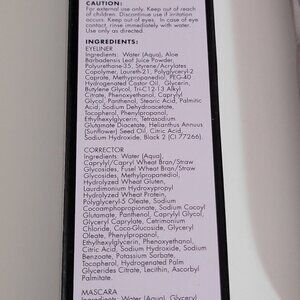 CAUTION:
For external use only. Keep out of reach
of children. Discontinue use if irritation
occurs. Keep out of eyes. In case of eye
contact, rinse immediately with water.
Use only as directed
INGREDIENTS:
EYELINER
Ingredients: Water (Aqua), Aloe
Barbadensis Leaf Juice Powder,
Polyurethane-35, Styrene/Acrylates
Copolymer, Laureth-21, Polyglyceryl-2
Caprate, Methylpropanediol, PEG-40
Hydrogenated Castor Oil, Glycerin,
Butylene Glycol, Tri-C12-13 Alkyl
Citrate, Phenoxyethanol, Caprylyl
Glycol, Panthenol, Stearic Acid, Palmitic
Acid, Sodium Dehydroacetate,
Tocopherol, Phenylpropanol,
Ethylhexylglycerin, Tetrasodium
Glutamate Diacetate, Helianthus Annuus
(Sunflower) Seed Oil, Citric Acid,
Sodium Hydroxide, Black 2 (CI 77266).
CORRECTOR
Ingredients: Water (Aqua),
Caprylyl/Capryl Wheat Bran/Straw
Glycosides, Fusel Wheat Bran/Straw
Glycosides, Methylpropanediol,
Hydrolyzed Wheat Gluten,
Laurdimonium Hydroxypropyl
Hydrolyzed Wheat Protein,
Polyglyceryl-5 Oleate, Sodium
Cocoamphopropionate, Sodium Cocoyl
Glutamate, Panthenol, Caprylyl Glycol,
Glyceryl Caprylate, Cetrimonium
Chloride, Coco-Glucoside, Glyceryl
Oleate, Phenylpropanol,
Ethylhexylglycerin, Phenoxyethanol,
Citric Acid, Sodium Hydroxide, Sodium
Benzoate, Potassium Sorbate,
Tocopherol, Hydrogenated Palm
Glycerides Citrate, Lecithin, Ascorbyl
Palmitate.
MASCARA
Ingredients: Water (Aqua), Glyceryl